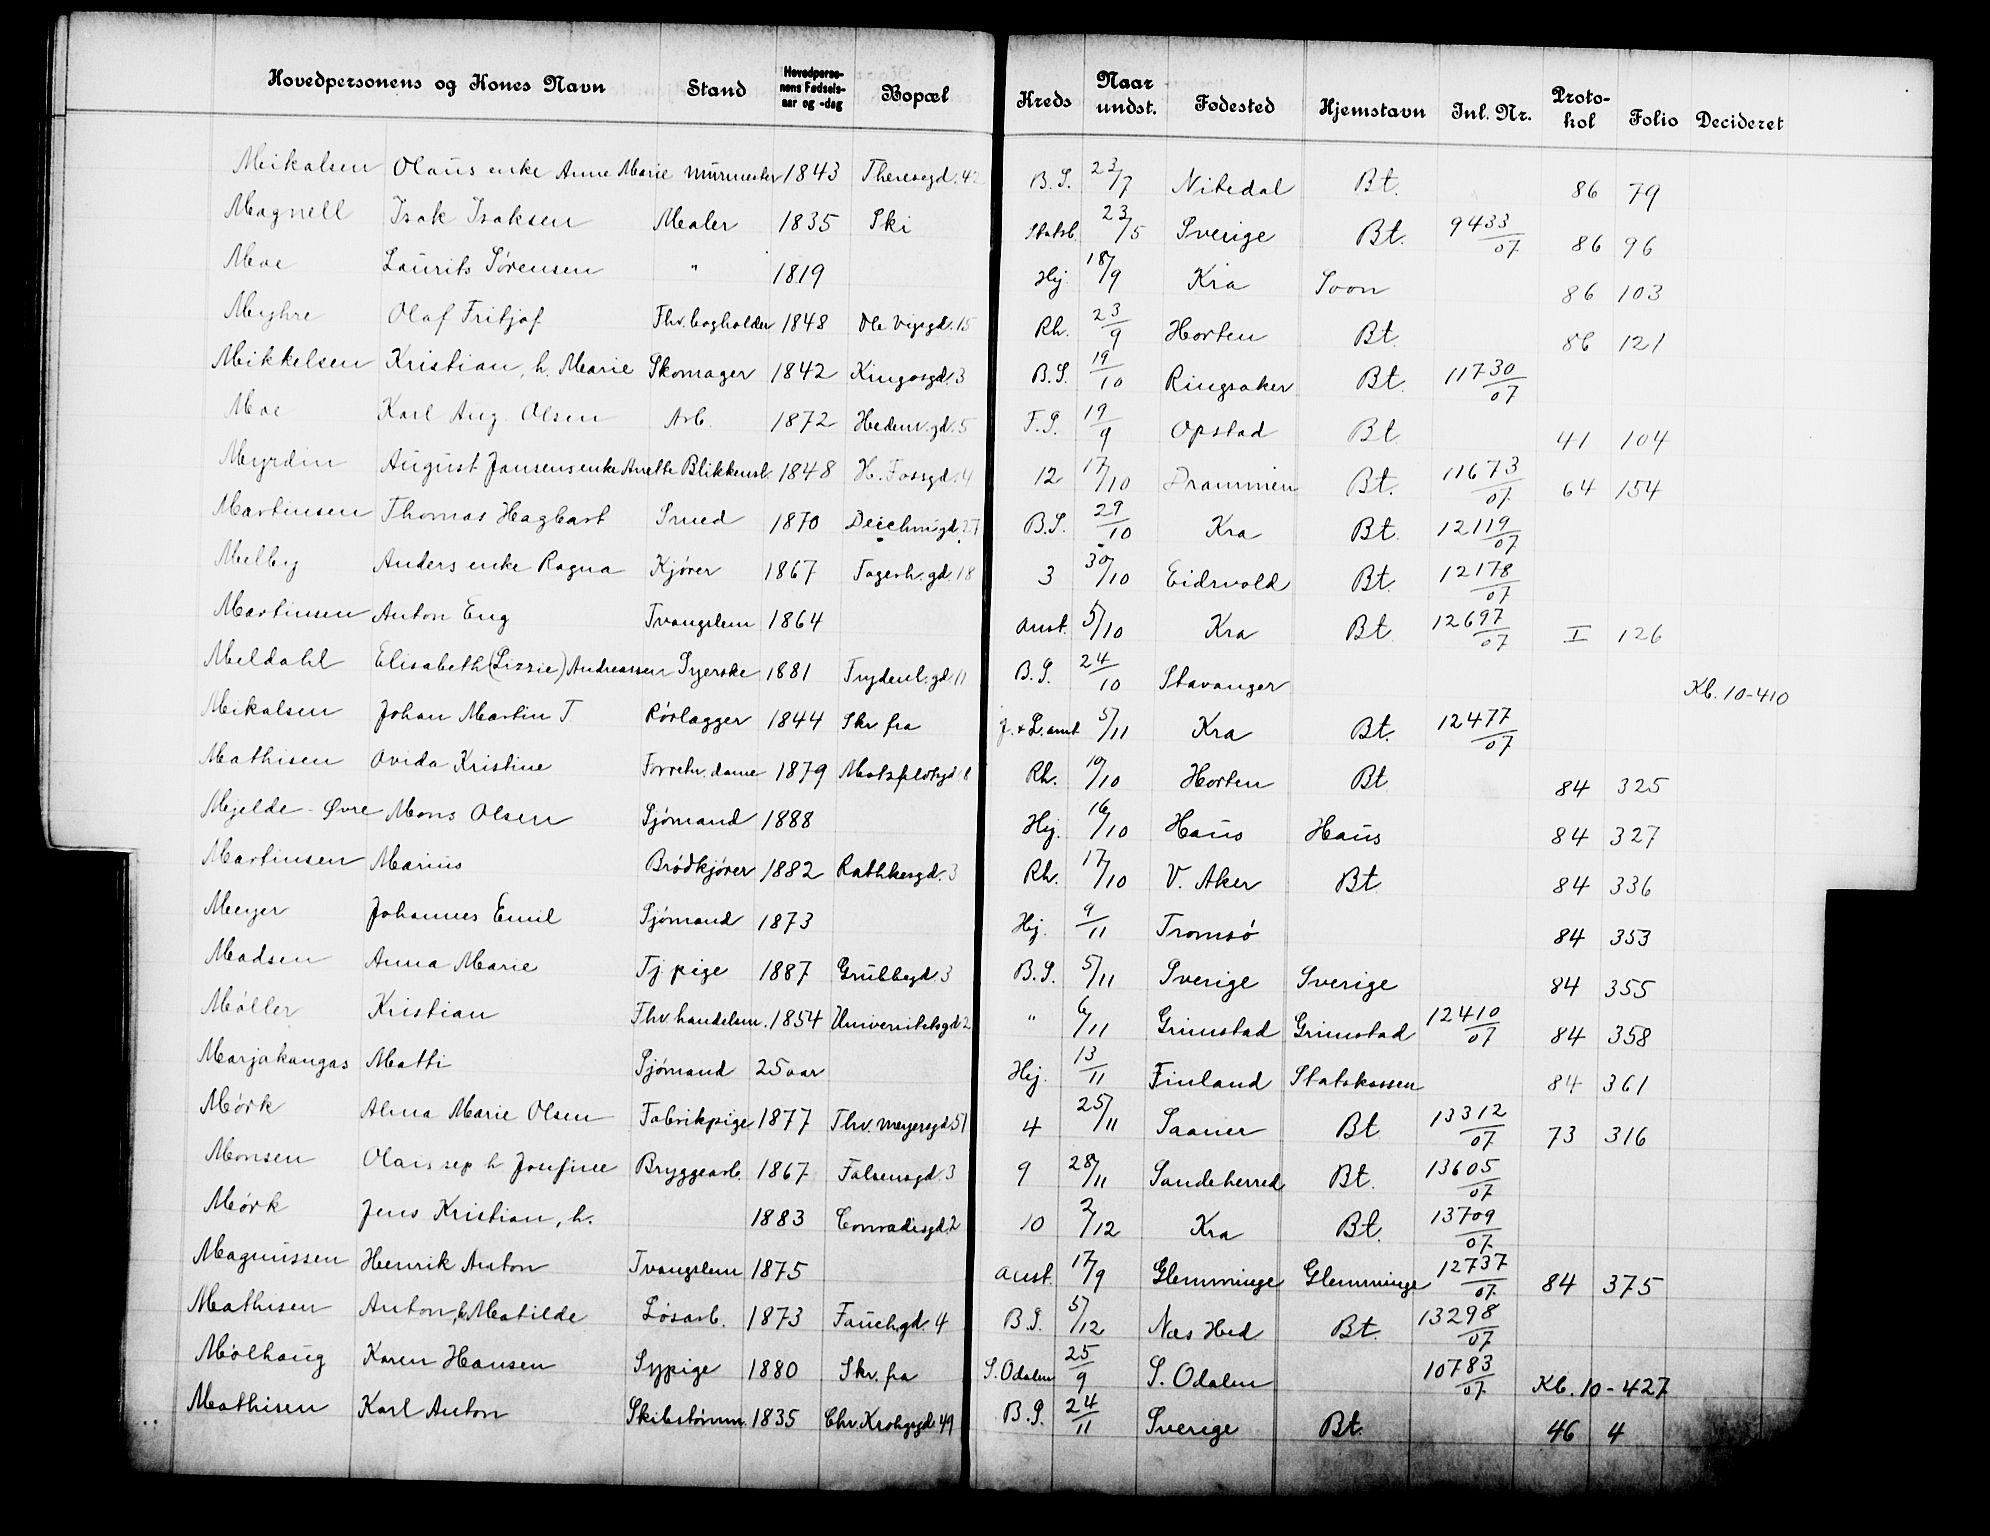 Hovedpersonens og Kones Navn Stand Hovedpersonens Fødselsaar og -dag Bopæl Kreds Naar undst. Fødested Hjemstavn Jnl. Nr. Protokol Folio Decideret
Mikalsen Olaus enke Anne Marie Murmester 1843 Theresegd. 42 B.S. 23/7 Nitedal Bt. 86 79
Magnell Isak Isaksen Maler 1835 Ski Statsb. 23/5 Sverige Bt. 9433/07 86 96
Moe Laurits Sørensen " 1819 Hj. 18/9 Kra Soon 86 103
Myhre Olaf Fritjof Fhv. bogholder 1848 Ole Vigsgd. 15 Rh. 23/9 Horten Bt. 86 121
Mikkelsen Kristian, h. Marie Skomager 1842 Kingosgd. 3 B.S. 19/10 Ringsaker Bt. 11730/07
Moe Karl Aug. Olsen Arb. 1872 Hedem.gd. 5 F.S. 19/9 Opstad Bt. 41 104
Myrdin August Jansens enke Anette Blikkensl. 1848 H. Fossgd. 4 12 17/10 Drammen Bt. 11673/07 64 154
Martinsen Thomas Hagbart Smed 1870 Deichmgd. 27 B.S. 29/10 Kra Bt. 12119/07
Melby Anders enke Ragna Kjører 1867 Fagerh.gd. 18 3 30/10 Eidsvold Bt. 12178/07
Martinsen Anton Eng Tvangslem 1864 Anst. 5/10 Kra Bt. 12697/07 I 126
Meldahl Elisabeth (Lizzie) Andreassen Syerske 1881 Frydenl.gd. 11 B.S. 24/10 Stavanger Kb. 10-410
Mikalsen Johan Martin T Rørlægger 1844 Skr. fra J. & L. amt 5/11 Kra Bt. 12477/07
Mathisen Ovida Kristine Forretn. dame 1879 Motzfeldtsgd. 8 Rh. 10/10 Horten Bt. 84 325
Mjelde - Øvre Mons Olsen Sjømand 1888 Hj. 16/10 Haus Haus 84 327
Martinsen Marius Brødkjører 1882 Rathkesgd. 3 Rh. 17/10 V. Aker Bt. 84 336
Meyer Johannes Emil Sjømand 1873 Hj. 9/11 Tromsø 84 353
Madsen Anna Marie Tj pige 1887 Grubbegd. 3 B.S. 5/11 Sverige Sverige 84 355
Møller Kristian Fhv. handelsm. 1854 Universitetsgd 2 " 6/11 Grimstad Grimstad 12410/07 84 358
Marjakangas Matti Sjømand 25 aar Hj. 13/11 Finland Statskassen 84 361
Mørk Alma Marie Olsen Fabrikpige 1877 Thv. Meyersgd. 51 4 25/11 Saaner Bt. 13312/07 73 316
Monsen Olaus sep. h Josefine Bryggearb. 1867 Falsensgd. 3 9 28/11 Sandeherred Bt. 13605/07
Mørk Jens Kristian, h. 1883 Conradisgd. 2 10 2/12 Kra Bt. 13709/07
Magnussen Henrik Anton Tvangslem 1875 Anst. 17/9 Glemminge Glemminge 12737/07 84 375
Mathisen Anton, h. Matilde Løsarb. 1873 Fauch.gd. 4 B.S. 5/12 Næs Hed. Bt. 13298/07
Mølhaug Karen Hansen Sypige 1880 Skr. fra S. Odalen 25/9 S. Odalen 10783/07 Kb. 10-427
Mathisen Karl Anton Skibstømm. 1835 Chr. Krohgsgd. 49 B.S. 24/11 Sverige Bt. 46 4